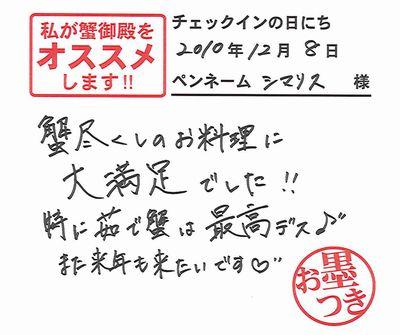 私が蟹御殿を
オススメ
します!!
チェックインの日にち
2010年12月8日
ペンネーム シマリス 様
蟹尽くしのお料理に
大満足でした!!
特に茹で蟹は最高デス♪
また来年も来たいです♡
お墨つき